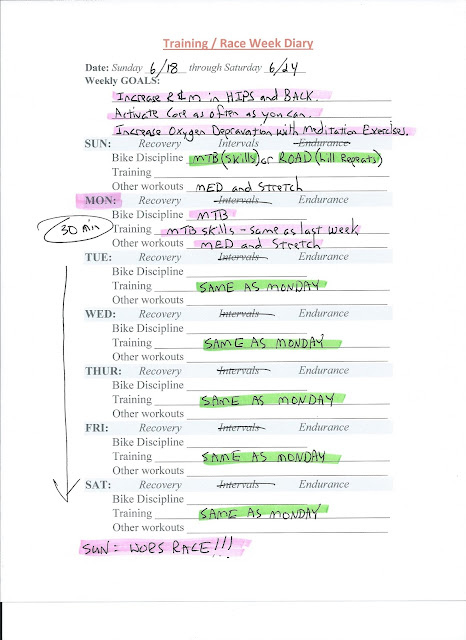 Training / Race Week Diary
Date: Sunday 6/18 through Saturday 6/24
Weekly GOALS:
Increase R&M in HIPS and BACK.
Activate Core as often as you can.
Increase Oxygen Depravation with Meditation Exercises.
SUN: Recovery Intervals Endurance
Bike Discipline MTB (skills) or ROAD (hill Repeats)
Training
Other workouts MED and Stretch
MON: Recovery Intervals Endurance
Bike Discipline MTB
30 min Training MTB skills - same as last week
Other workouts MED and Stretch
TUE: Recovery Intervals Endurance
Bike Discipline
Training SAME AS MONDAY
Other workouts
WED: Recovery Intervals Endurance
Bike Discipline
Training SAME AS MONDAY
Other workouts
THUR: Recovery Intervals Endurance
Bike Discipline
Training SAME AS MONDAY
Other workouts
FRI: Recovery Intervals Endurance
Bike Discipline
Training SAME AS MONDAY
Other workouts
SAT: Recovery Intervals Endurance
Bike Discipline
Training SAME AS MONDAY
Other workouts
SUN: WORS RACE!!!